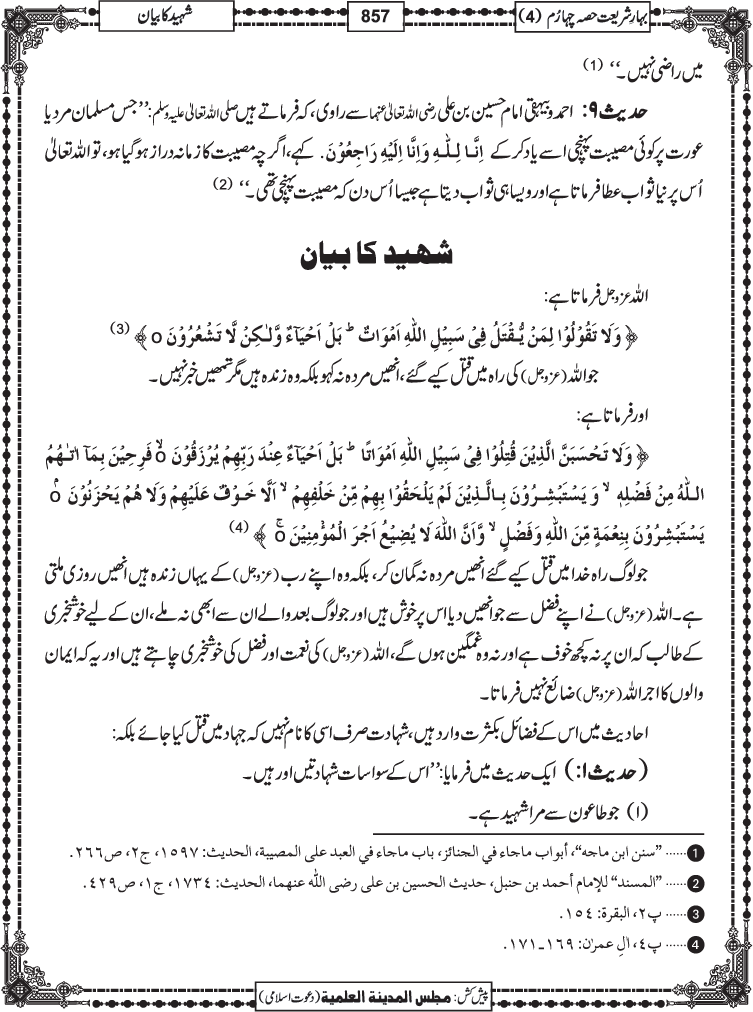 بہارِ شریعت حصہ چہارم (4)
857
شہید کا بیان
میں راضی نہیں۔‘‘ (1)
حدیث ۹: احمد و بیہقی امام حسین بن علی رضی اللہ تعالیٰ عنہما سے راوی، کہ فرماتے ہیں صلی اللہ تعالیٰ علیہ وسلم: ’’جس مسلمان مرد یا
عورت پر کوئی مصیبت پہنچی اسے یاد کرکے اِنَّا لِلّٰہِ وَاِنَّا اِلَیْہِ رَاجِعُوْنَ. کہے، اگرچہ مصیبت کا زمانہ دراز ہوگیا ہو، تو اللہ تعالیٰ
اُس پر نیا ثواب عطا فرماتا ہے اور ویسا ہی ثواب دیتا ہے جیسا اُس دن کہ مصیبت پہنچی تھی۔‘‘ (2)
شہید کا بیان
اللہ عزوجل فرماتا ہے:
﴿ وَلَا تَقُوْلُوْا لِمَنْ یُّقْتَلُ فِیْ سَبِیْلِ اللہِ اَمْوَاتٌ ؕ بَلْ اَحْیَآءٌ وَّلٰکِنْ لَّا تَشْعُرُوْنَ o ﴾ (3)
جو اللہ (عزوجل) کی راہ میں قتل کیے گئے، انھیں مردہ نہ کہو بلکہ وہ زندہ ہیں مگر تمھیں خبر نہیں۔
اور فرماتا ہے:
﴿ وَلَا تَحْسَبَنَّ الَّذِیْنَ قُتِلُوْا فِیْ سَبِیْلِ اللہِ اَمْوَاتًا ؕ بَلْ اَحْیَآءٌ عِنْدَ رَبِّھِمْ یُرْزَقُوْنَ oۙ فَرِحِیْنَ بِمَآ اٰتٰىھُمُ
اللہُ مِنْ فَضْلِہٖ ۙ وَ یَسْتَبْشِرُوْنَ بِالَّذِیْنَ لَمْ یَلْحَقُوْا بِھِمْ مِّنْ خَلْفِھِمْ ۙ اَلَّا خَوْفٌ عَلَیْھِمْ وَلَا ھُمْ یَحْزَنُوْنَ oۘ
یَسْتَبْشِرُوْنَ بِنِعْمَۃٍ مِّنَ اللہِ وَفَضْلٍ ۙ وَّاَنَّ اللہَ لَا یُضِیْعُ اَجْرَ الْمُؤْمِنِیْنَ oۚ ﴾ (4)
جو لوگ راہ خدا میں قتل کیے گئے انھیں مردہ نہ گمان کر، بلکہ وہ اپنے رب (عزوجل) کے یہاں زندہ ہیں انھیں روزی ملتی
ہے۔ اللہ (عزوجل) نے اپنے فضل سے جو انھیں دیا اس پر خوش ہیں اور جو لوگ بعد والے ان سے ابھی نہ ملے، ان کے لیے خوشخبری
کے طالب کہ ان پر نہ کچھ خوف ہے اور نہ وہ غمگین ہوں گے، اللہ (عزوجل) کی نعمت اور فضل کی خوشخبری چاہتے ہیں اور یہ کہ ایمان
والوں کا اجر اللہ (عزوجل) ضائع نہیں فرماتا۔
احادیث میں اس کے فضائل بکثرت وارد ہیں، شہادت صرف اسی کا نام نہیں کہ جہاد میں قتل کیا جائے بلکہ:
(حدیث ۱:) ایک حدیث میں فرمایا: ’’اس کے سوا سات شہادتیں اور ہیں۔
(۱) جو طاعون سے مرا شہید ہے۔
1 ...... ”سنن ابن ماجه“، أبواب ماجاء في الجنائز، باب ماجاء في العبد على المصيبة، الحديث: ١٥٩٧، ج٢، ص٢٦٦.
2 ...... ”المسند“ للإمام أحمد بن حنبل، حديث الحسين بن علي رضى الله عنهما، الحديث: ١٧٣٤، ج١، ص٤٢٩.
3 ...... پ٢، البقرة: ١٥٤.
4 ...... پ٤، اٰل عمرٰن: ١٦٩ـ١٧١.
پیش کش: مجلس المدینة العلمیة (دعوت اسلامی)